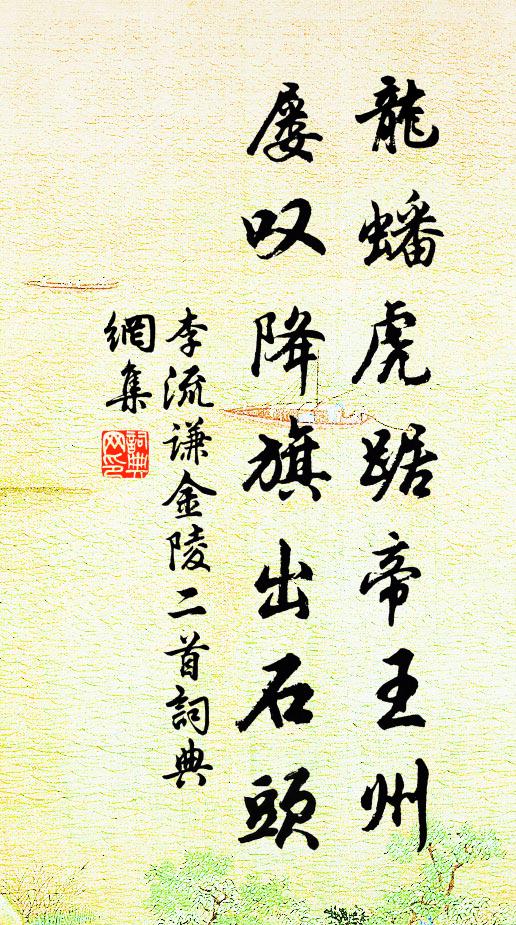 龍蟠虎踞帝王州
屡叹降旗出石頭
李流谦金陵二首詞典
網集
詞典
网印